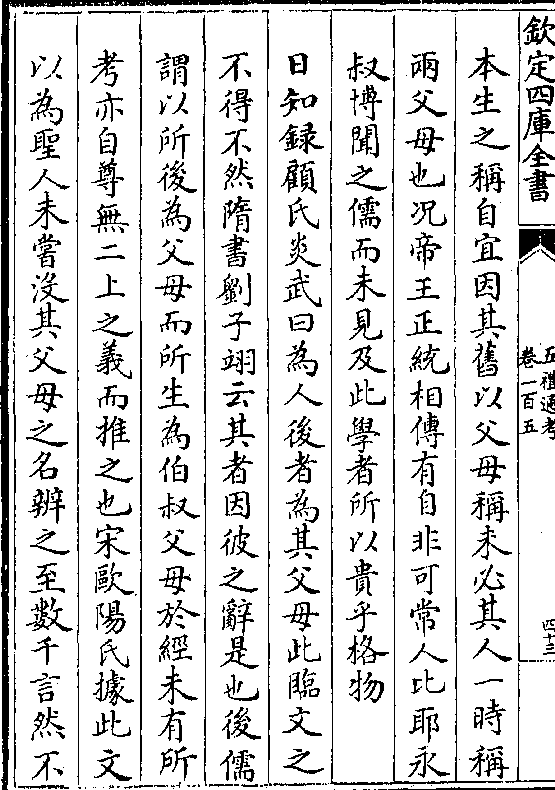 欽定四庫全書
五禮通考
卷一百五
四十三
本生之稱自宜因其舊以父母稱未必其人一時稱
兩父母也况帝王正統相傳有自非可常人比耶永
叔博聞之儒而未見及此學者所以貴乎格物
日知録顧氏炎武曰為人後者為其父母此臨文之
不得不然隋書劉子翊云其者因彼之辭是也後儒
謂以所後為父母而所生為伯叔父母於經未有所
考亦自尊無二上之義而推之也宋歐陽氏據此文
以為聖人未嘗沒其父母之名辨之至數千言然不